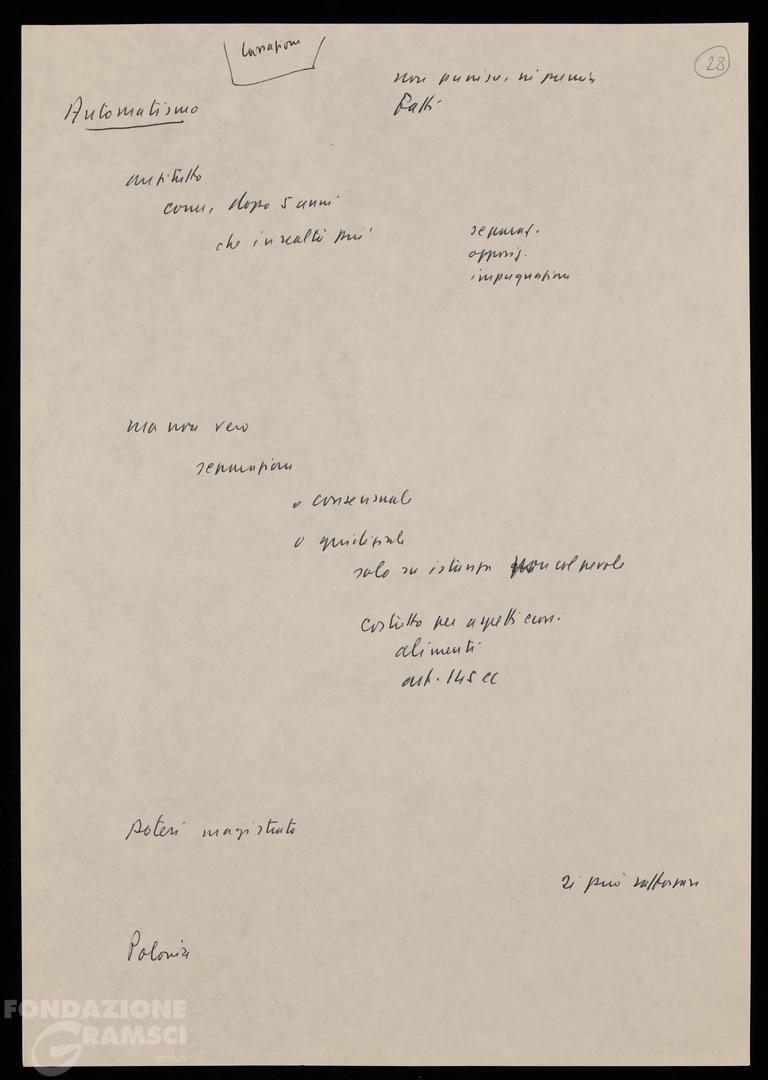 Cassazione
28
non punisce, ni premia
Patti
Automatismo
anzitutto
conv, dopo 5 anni
che in realtà più
separaz.
opposiz.
impugnazione
ma non vero
separazione
o consensuale
o giudiziale
solo su istanza non colpevole
costretto per aspetti econ.
alimenti
art. 145 cc
Poteri magistrato
Si può rafforzare
Polonia
FONDAZIONE
GRAMSCI
onlus